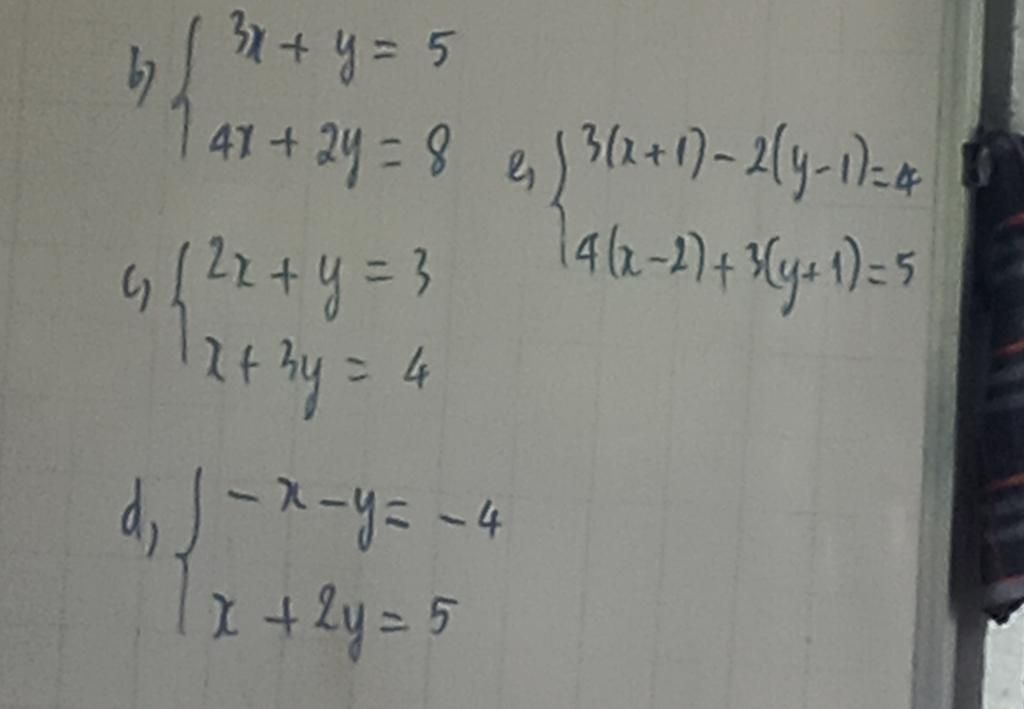 b, 3x + y = 5
4x + 2y = 8
c, 2x + y = 3
x + 3y = 4
d, -x - y = -4
x + 2y = 5
e, 3(x + 1) - 2(y - 1) = 4
4(x - 2) + 3(y + 1) = 5